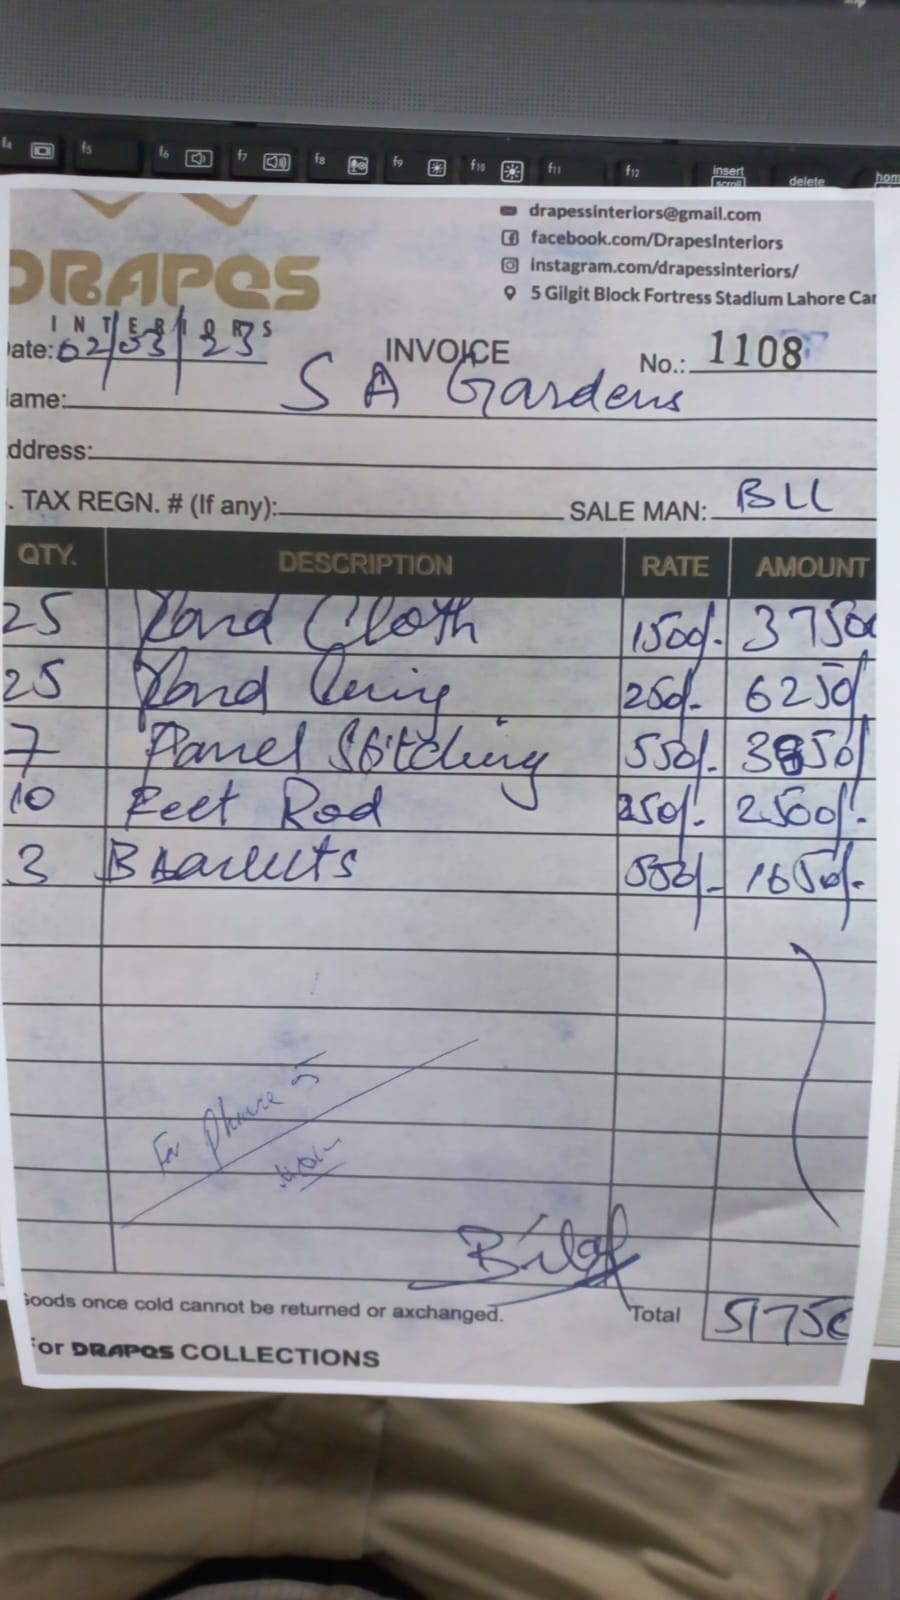 f4 f5 f6 f7 f8 f9 f10 f11 f12 insert delete hom
scroll
drapessinteriors@gmail.com
facebook.com/DrapesInteriors
instagram.com/drapessinteriors/
5 Gilgit Block Fortress Stadium Lahore Can
DRAPES
INTERIORS
ate: 02/03/23 INVOICE No.: 1108
ame: S A Gardens
ddress:
. TAX REGN. # (If any): SALE MAN: BLL
QTY. DESCRIPTION RATE AMOUNT
25 Yard Cloth 1500/- 37500
25 Yard 250/- 6250/
7 Pannel Stitching 550/- 3850/
10 Feet Rod 250/- 2500/-
3 Brackets 550/- 1650/-
For Phase 5
Bilal
Goods once cold cannot be returned or axchanged. Total 51750
For DRAPES COLLECTIONS